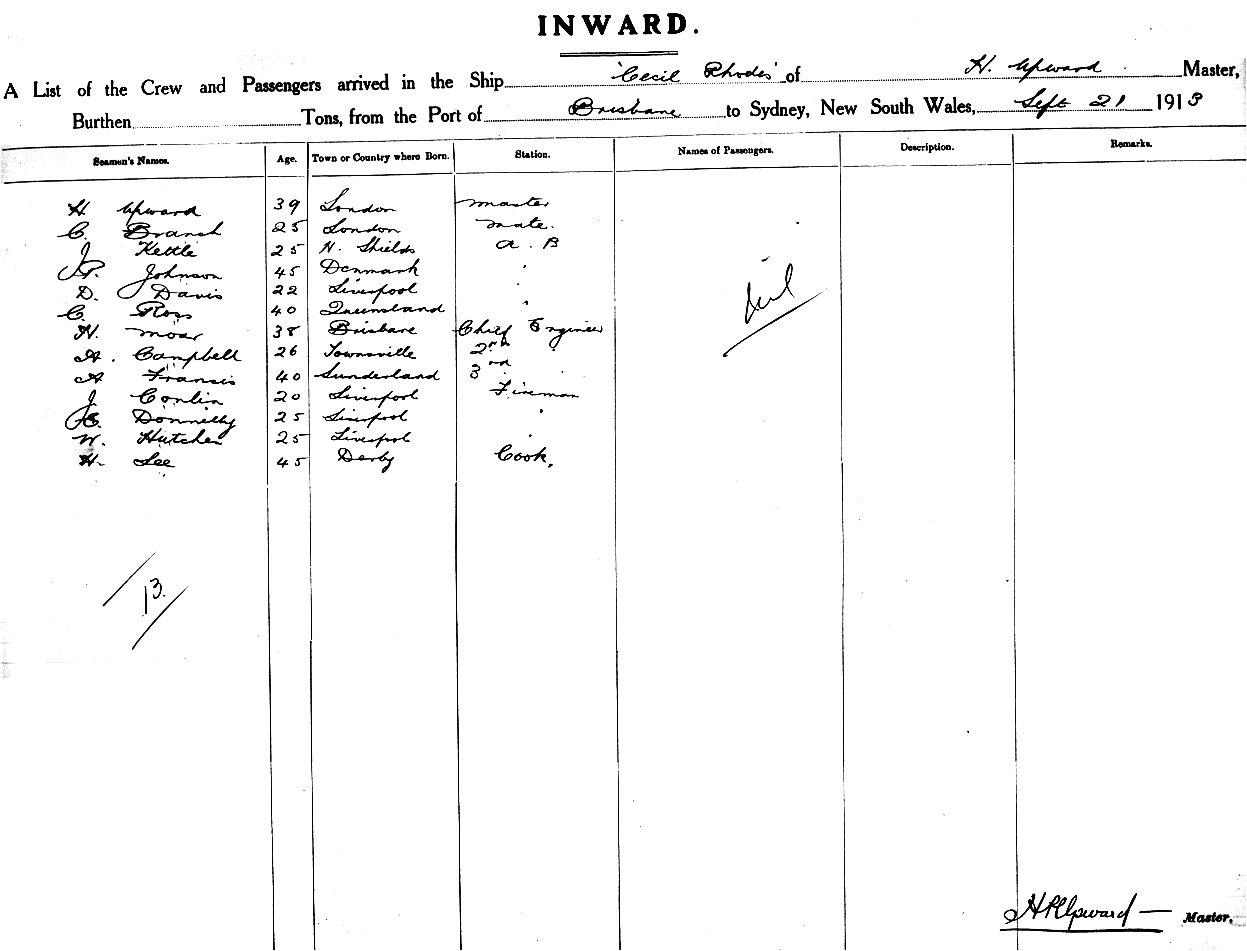 INWARD.
A List of the Crew and Passengers arrived in the Ship "Cecil Rhodes" of H. Upward Master,
Burthen Tons, from the Port of Brisbane to Sydney, New South Wales, Sept 21 1913
Seamen's Names. Age. Town or Country where Born. Station. Names of Passengers. Description. Remarks.
H. Upward 39 London Master
C. Branch 25 London Mate.
J Kettle 25 N. Shields A. B
P. Johnson 45 Denmark "
D. Davis 22 Liverpool
C. Ross 40 Queensland "
H. Moar 38 Brisbane Chief Engineer
A. Campbell 26 Townsville 2nd
A Francis 40 Sunderland 3rd
J Conlin 20 Liverpool Fireman
Donnelly 25 Liverpool "
W. Hutchen 25 Liverpool "
H. Lee 45 Derby Cook.
Nil
13.
H P Upward Master.